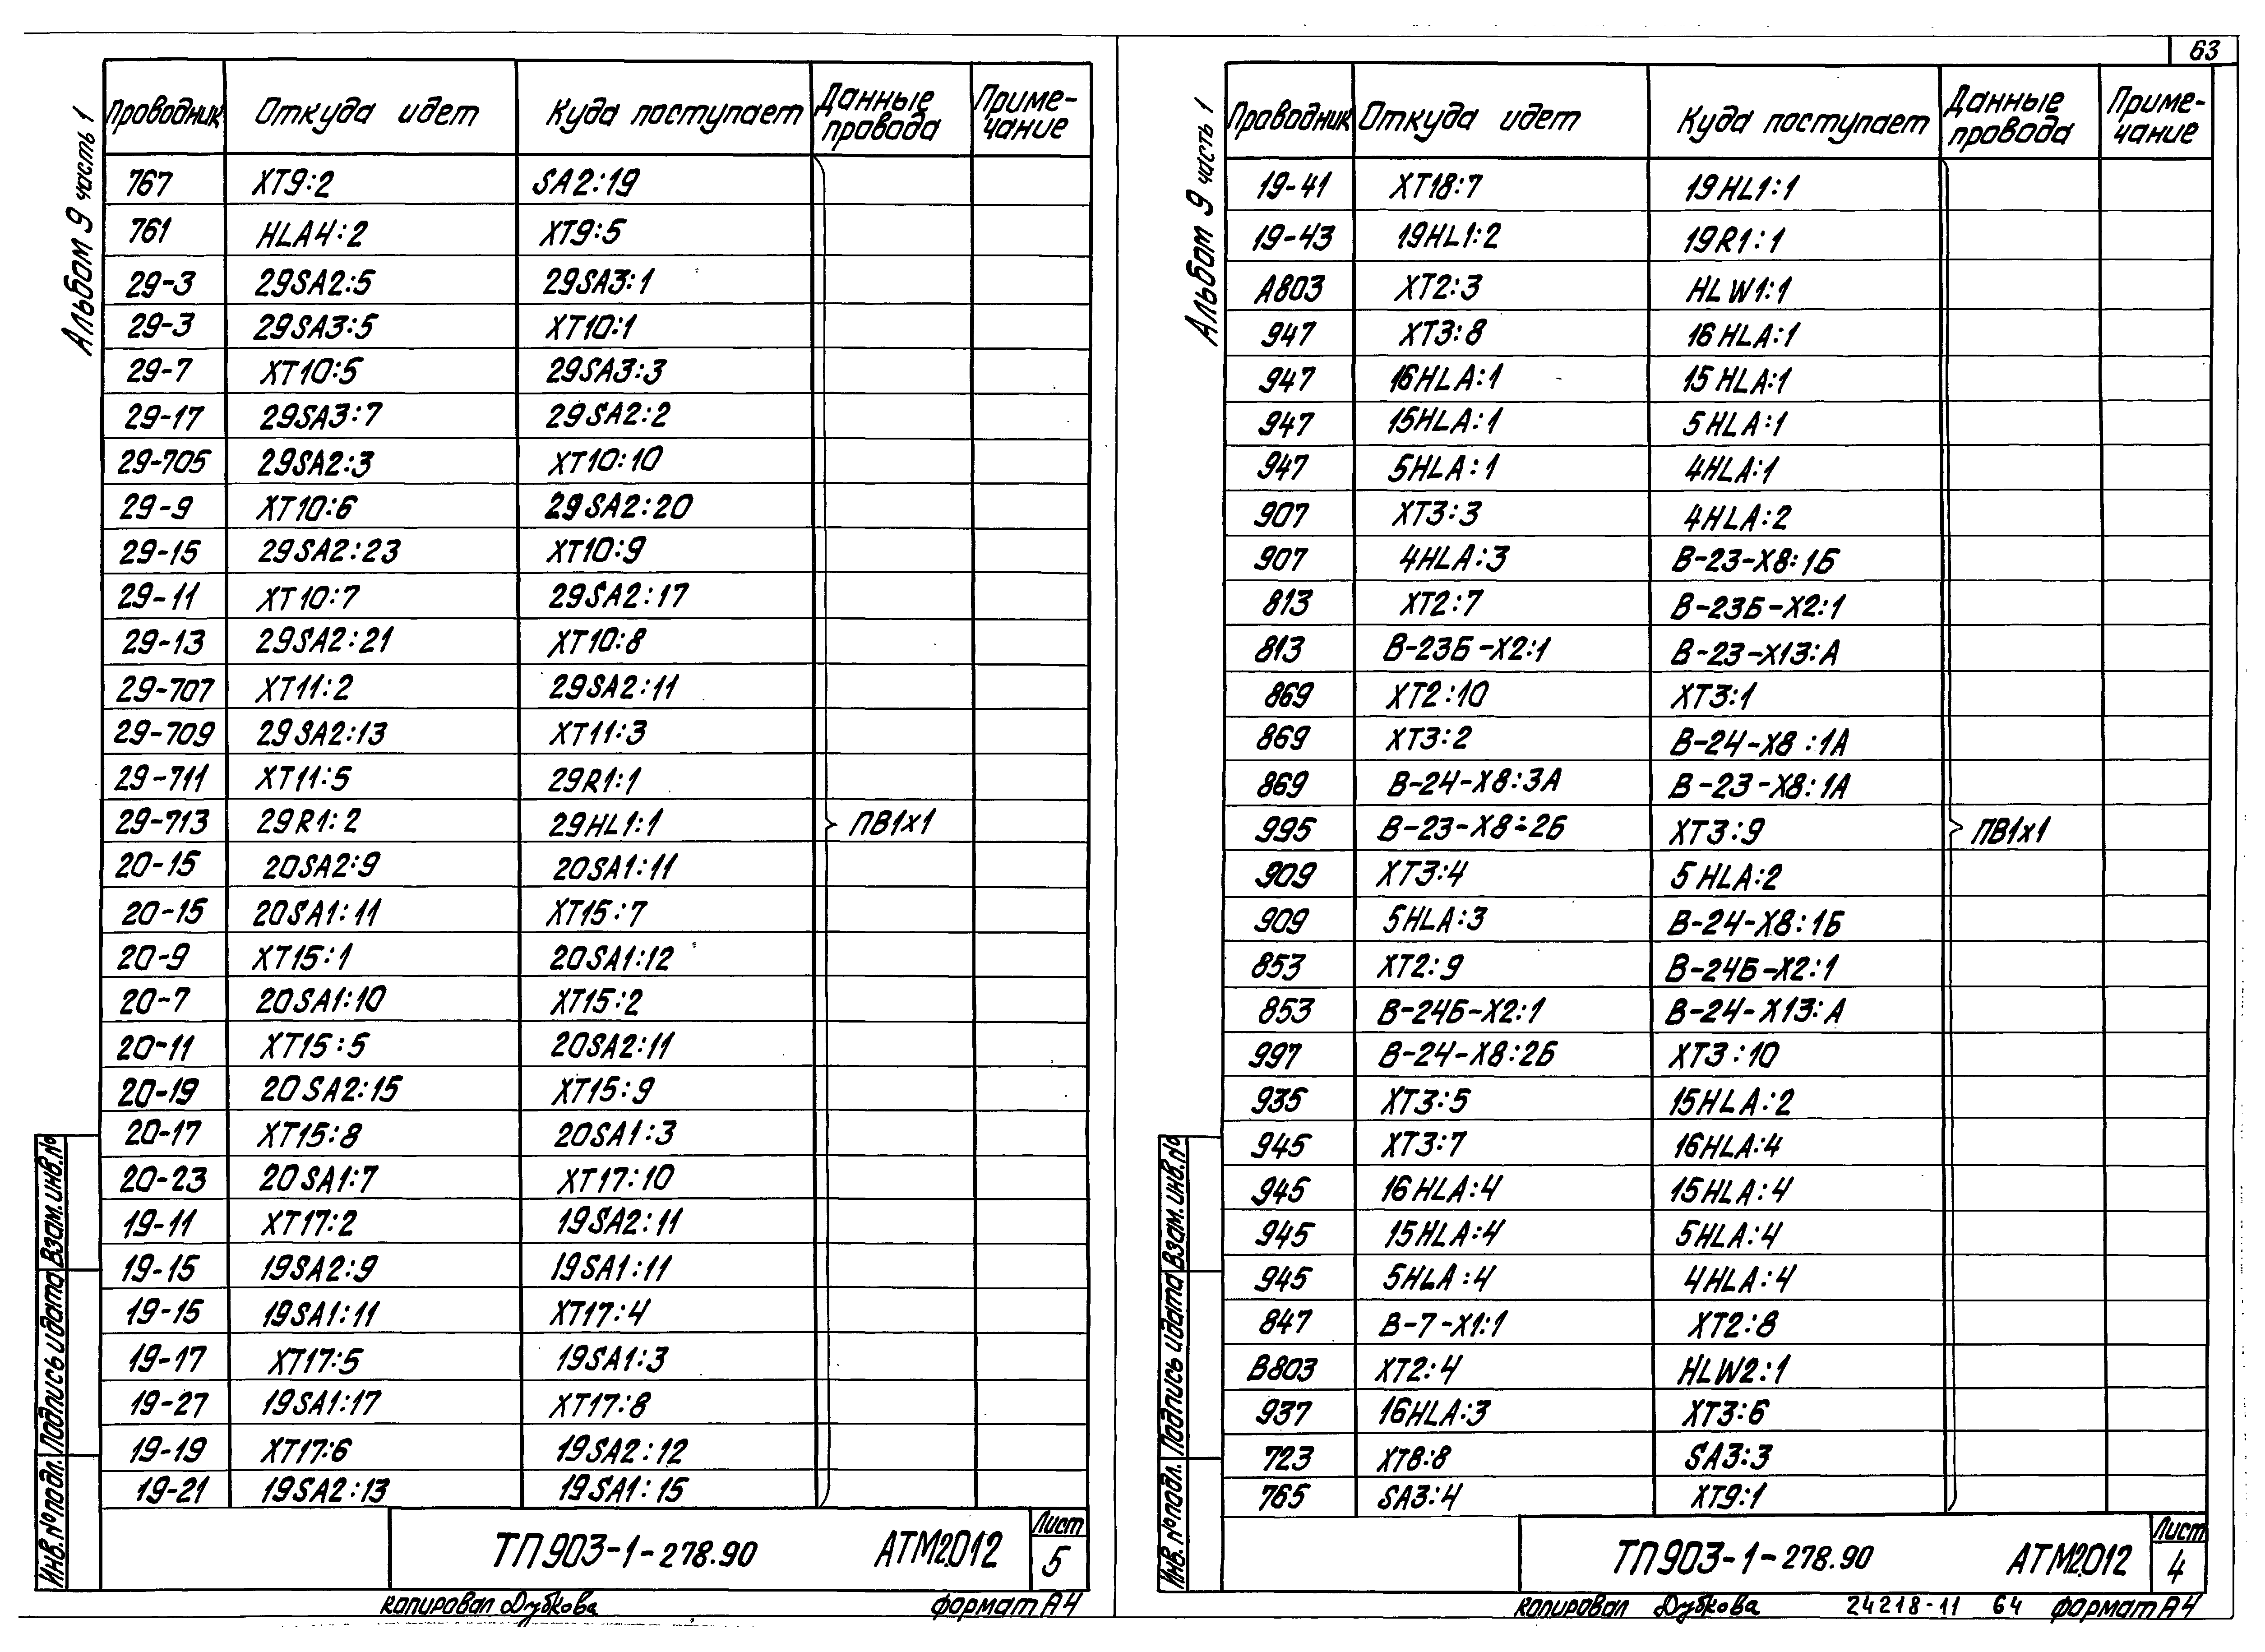 63
Альбом 9 часть 1
Проводник Откуда идет Куда поступает Данные провода Приме-чание
767 XT9:2 SA2:19
761 HLA4:2 XT9:5
29-3 29SA2:5 29SA3:1
29-3 29SA3:5 XT10:1
29-7 XT10:5 29SA3:3
29-17 29SA3:7 29SA2:2
29-705 29SA2:3 XT10:10
29-9 XT10:6 29SA2:20
29-15 29SA2:23 XT10:9
29-11 XT10:7 29SA2:17
29-13 29SA2:21 XT10:8
29-707 XT11:2 29SA2:11
29-709 29SA2:13 XT11:3
29-711 XT11:5 29R1:1
29-713 29R1:2 29HL1:1 ПВ1х1
20-15 20SA2:9 20SA1:11
20-15 20SA1:11 XT15:7
20-9 XT15:1 20SA1:12
20-7 20SA1:10 XT15:2
20-11 XT15:5 20SA2:11
20-19 20SA2:15 XT15:9
20-17 XT15:8 20SA1:3
20-23 20SA1:7 XT17:10
19-11 XT17:2 19SA2:11
19-15 19SA2:9 19SA1:11
19-15 19SA1:11 XT17:4
19-17 XT17:5 19SA1:3
19-27 19SA1:17 XT17:8
19-19 XT17:6 19SA2:12
19-21 19SA2:13 19SA1:15
Инв. № подл. Подпись и дата Взам. инв. №
ТП 903-1-278.90 АТМ2.012 Лист 5
копировал Дубкова формат А4
Альбом 9 часть 1
Проводник Откуда идет Куда поступает Данные провода Приме-чание
19-41 XT18:7 19HL1:1
19-43 19HL1:2 19R1:1
A803 XT2:3 HLW1:1
947 XT3:8 16HLA:1
947 16HLA:1 15HLA:1
947 15HLA:1 5HLA:1
947 5HLA:1 4HLA:1
907 XT3:3 4HLA:2
907 4HLA:3 В-23-Х8:1Б
813 XT2:7 В-23Б-Х2:1
813 В-23Б-Х2:1 В-23-Х13:А
869 XT2:10 XT3:1
869 XT3:2 В-24-Х8:1А
869 В-24-Х8:3А В-23-Х8:1А
995 В-23-Х8:2Б XT3:9 ПВ1х1
909 XT3:4 5HLA:2
909 5HLA:3 В-24-Х8:1Б
853 XT2:9 В-24Б-Х2:1
853 В-24Б-Х2:1 В-24-Х13:А
997 В-24-Х8:2Б XT3:10
935 XT3:5 15HLA:2
945 XT3:7 16HLA:4
945 16HLA:4 15HLA:4
945 15HLA:4 5HLA:4
945 5HLA:4 4HLA:4
847 В-7-Х1:1 XT2:8
B803 XT2:4 HLW2:1
937 16HLA:3 XT3:6
723 XT8:8 SA3:3
765 SA3:4 XT9:1
Инв. № подл. Подпись и дата Взам. инв. №
ТП 903-1-278.90 АТМ2.012 Лист 4
копировал Дубкова 24218-11 64 формат А4